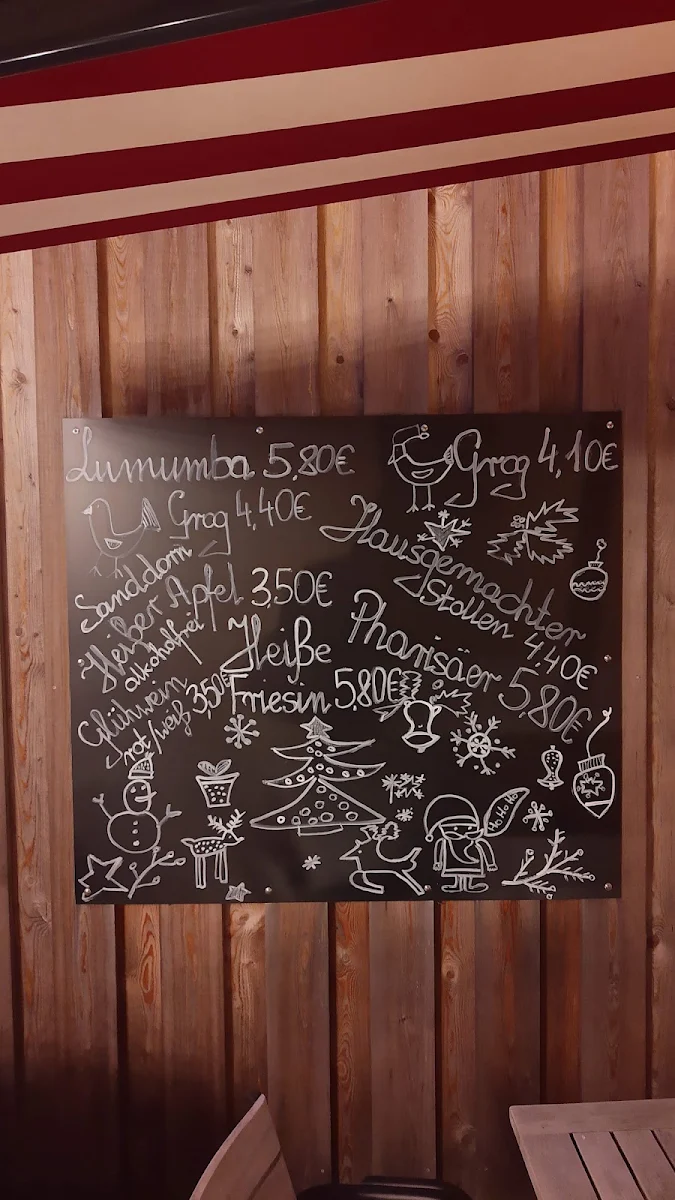 Lumumba 5,80€
Grog 4,10€
Grog 4,40€
Sanddorn
Hausgemachter
Stollen 4,40€
Heißer Apfel 3,50€
alkoholfrei
Pharisäer 5,80€
Heiße
Friesin 5,80€
Glühwein 3,50€
rot/weiß
Ho Ho Ho